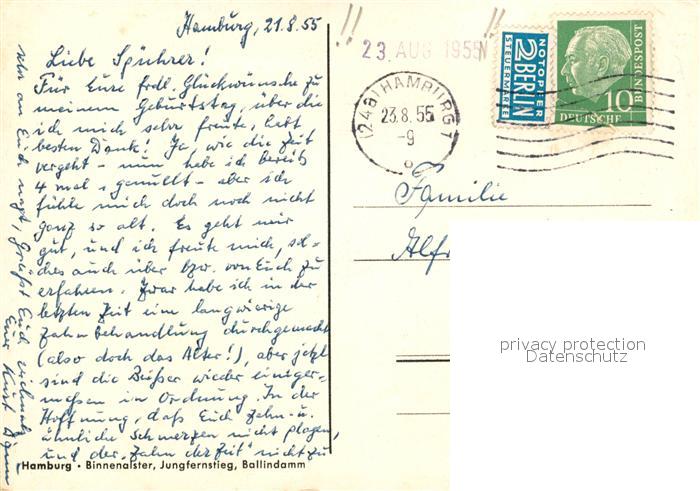 Hamburg, 21.8.55
Liebe Spührer!
Für Eure frdl. Glückwünsche zu
meinem Geburtstag, über die
ich mich sehr freute, habt
besten Dank! Ja, wie die Zeit
vergeht - nun habe ich bereits
4 mal "genullt" - aber ich
fühle mich doch noch nicht
ganz so alt. Es geht mir
gut, und ich freute mich, sol=
ches auch über bzw. von Euch zu
erfahren. Zwar habe ich in der
letzten Zeit eine langwierige
Zahnbehandlung durchgemacht
(also doch das Alter!), aber jetzt
sind die Beißer wieder einiger-
maßen in Ordnung. In der
Hoffnung, daß Euch Zahn- u.
ähnliche Schmerzen nicht plagen,
und der "Zahn der Zeit" nicht zu
sehr an Euch nagt, grüßt Euch
Euer Kurt
Hamburg · Binnenalster, Jungfernstieg, Ballindamm
23 AUG 1955
(24a) HAMBURG 1
23.8.55
-9
NOTOPFER
2 BERLIN
STEUERMARKE
10
DEUTSCHE
BUNDESPOST
Familie
Alfr
privacy protection
Datenschutz